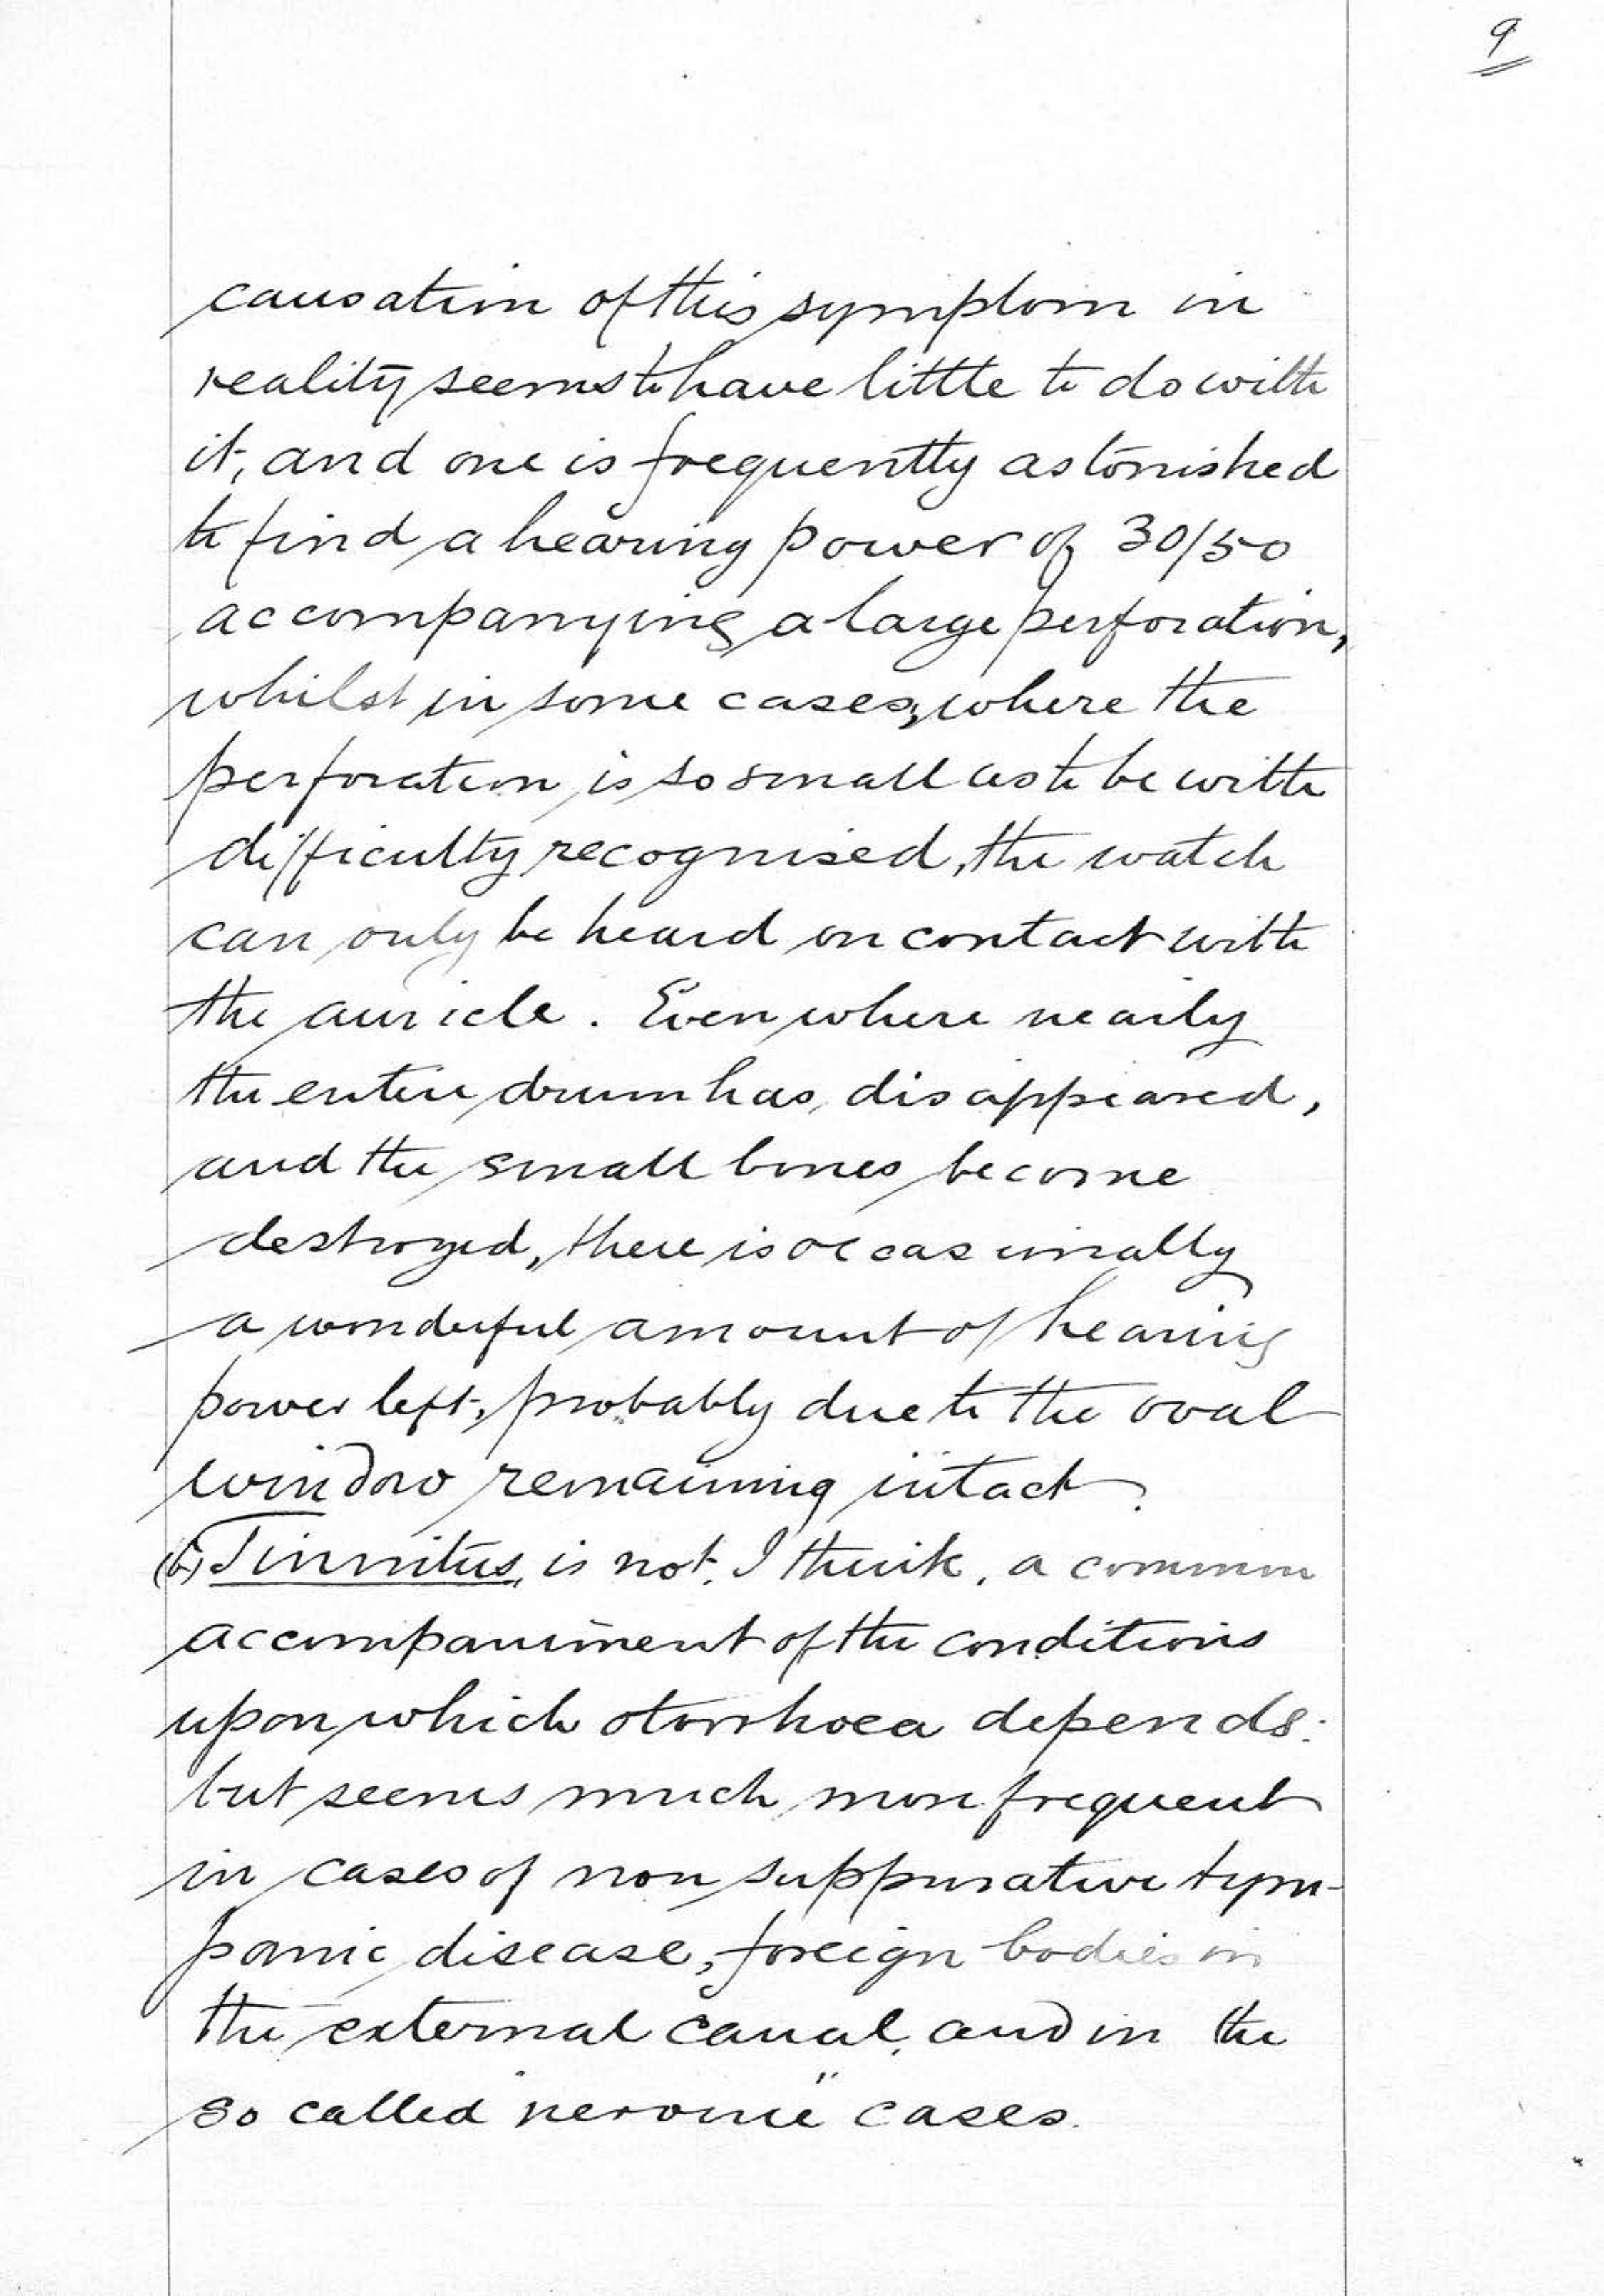 9
causation of this symptom in
reality seems to have little to do with
it, and one is frequently astonished
to find a hearing power of 30/50
accompanying a large perforation,
whilst in some cases, where the
perforation is so small as to be with
difficulty recognised, the watch
can only be heard on contact with
the auricle. Even where nearly
the entire drum has disappeared,
and the small bones become
destroyed, there is occasionally
a wonderful amount of hearing
power left, probably due to the oval
window remaining intact.
(b) Tinnitus, is not, I think, a common
accompaniment of the conditions
upon which otorrhoea depends:
but seems much more frequent
in cases of non suppurative tym-
panic disease, foreign bodies in
the external canal, and in the
so called "nervous" cases.